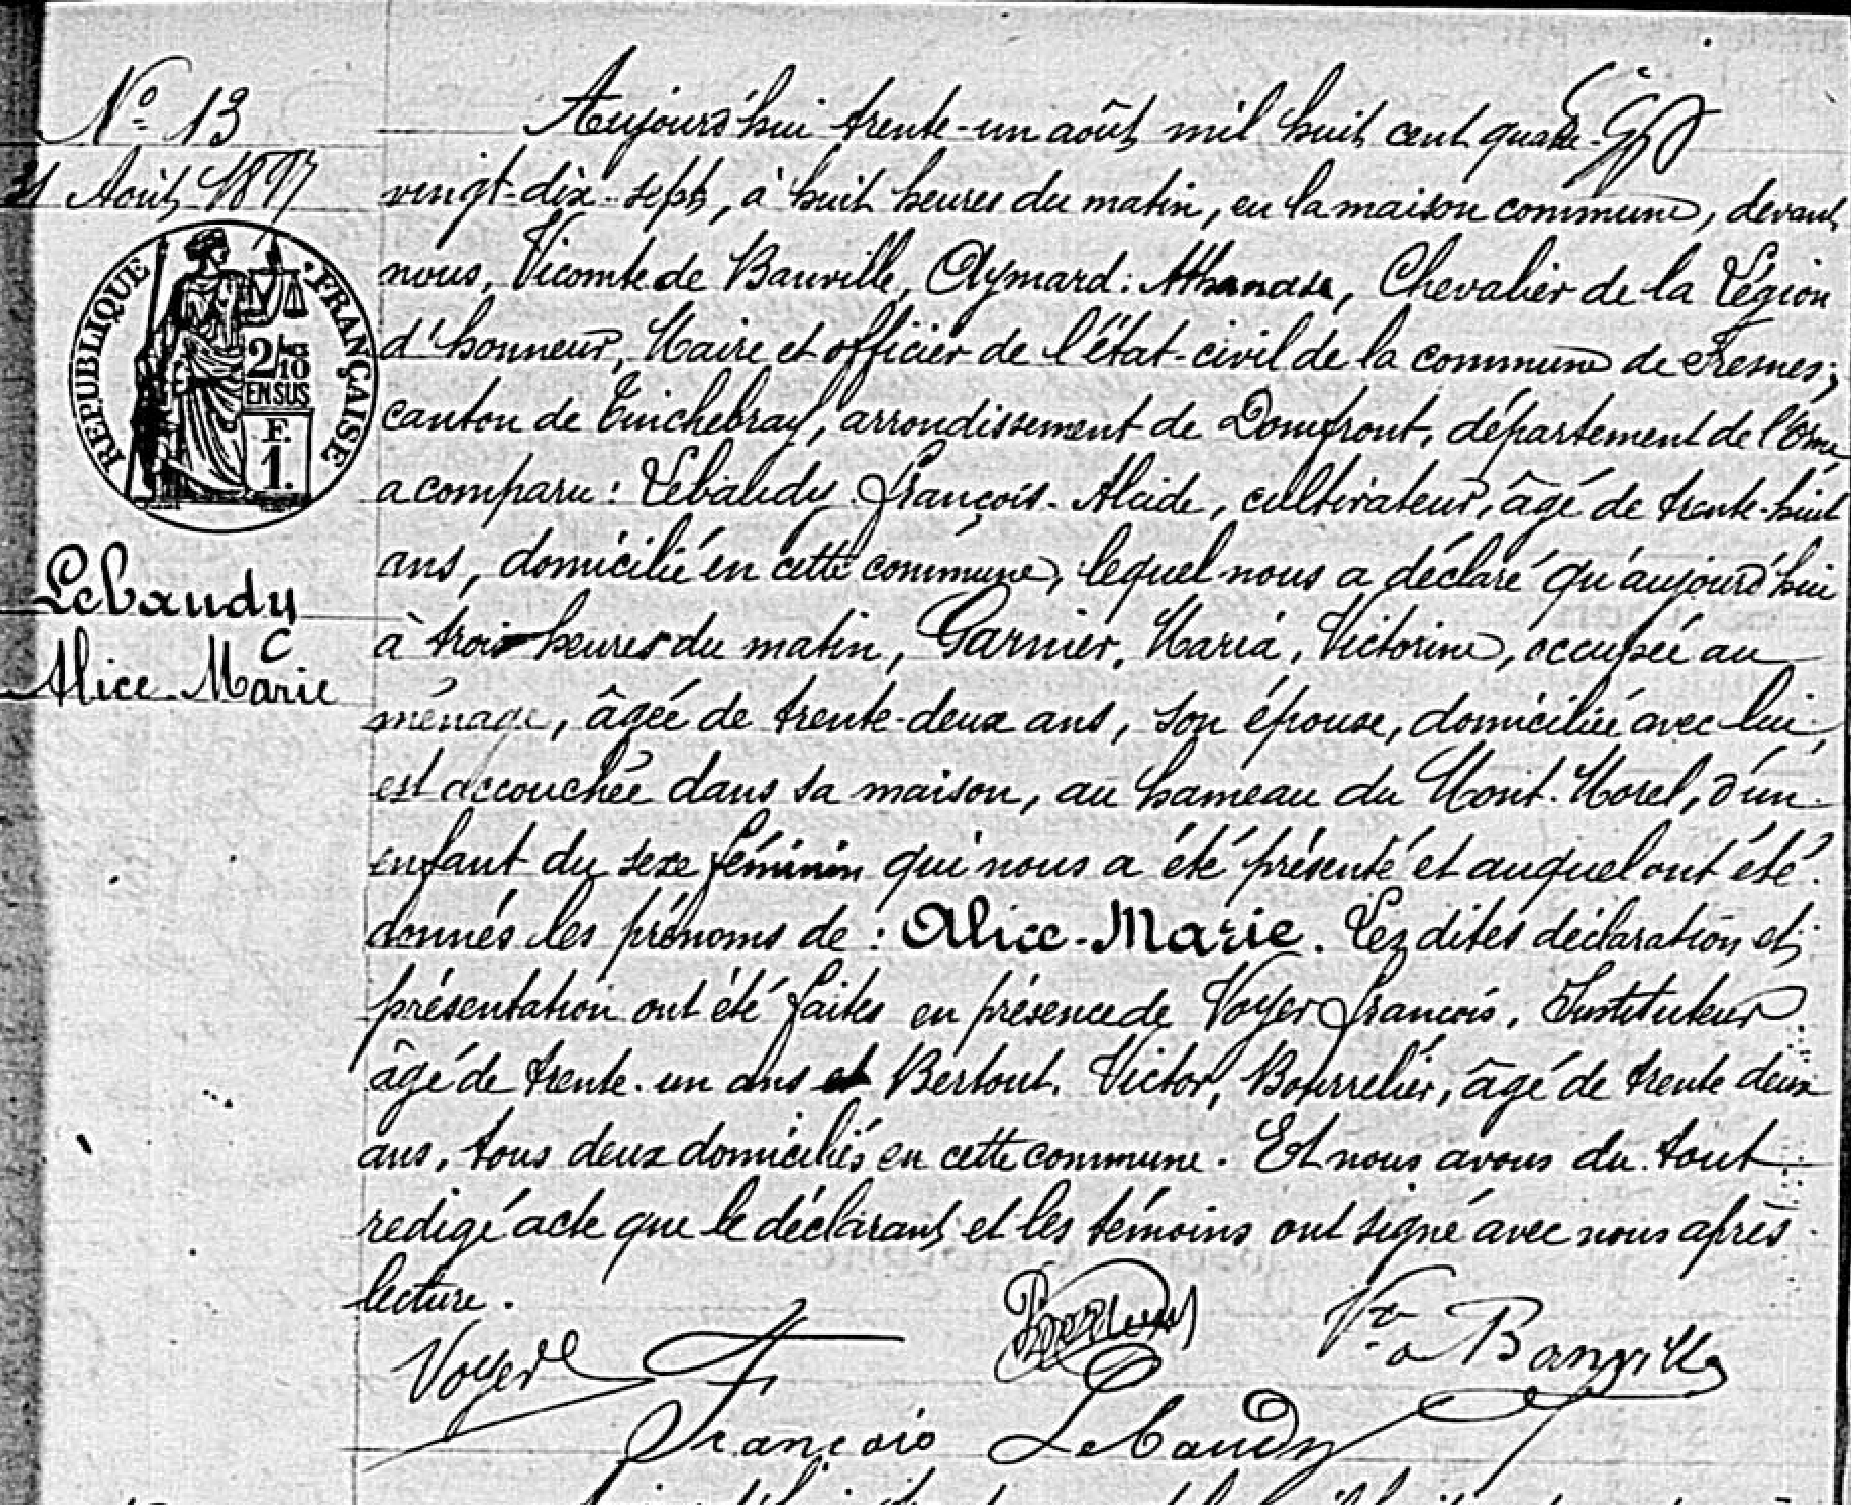 N° 13
Août 1897
RÉPUBLIQUE FRANÇAISE
2/10
EN SUS
F.
1.
Lebaudy
Alice Marie
Aujourd'hui trente-un août mil huit cent quatre-
vingt-dix-sept, à huit heures du matin, en la maison commune, devant
nous, Vicomte de Banville, Aymard: Athanase, Chevalier de la Légion
d'honneur, Maire et officier de l'état-civil de la commune de Fresnes,
canton de Tinchebray, arrondissement de Domfront, département de l'Orne
a comparu: Lebaudy François-Alcide, cultivateur, âgé de trente-huit
ans, domicilié en cette commune, lequel nous a déclaré qu'aujourd'hui
à trois heures du matin, Garnier, Maria, Victorine, occupée au
ménage, âgée de trente-deux ans, son épouse, domiciliée avec lui,
est accouchée dans sa maison, au hameau du Mont-Morel, d'un
enfant du sexe féminin qui nous a été présenté et auquel ont été
donnés les prénoms de: Alice-Marie. Lez dites déclaration et
présentation ont été faites en présence de Voyer François, Instituteur
âgé de trente-un ans et Bertout, Victor, Bourrelier, âgé de trente deux
ans, tous deux domiciliés en cette commune. Et nous avons du tout
redigé acte que le déclarant et les témoins ont signé avec nous après
lecture.
Voyer F Bertout Vte de Banville
François Lebaudy